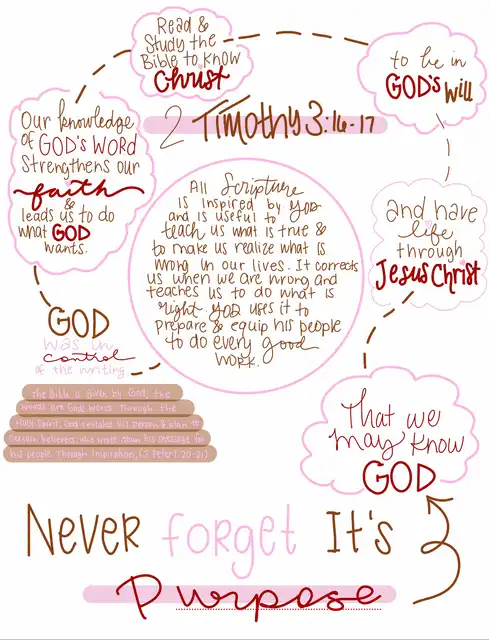 2 Timothy 3:16-17
All Scripture
is inspired by GOD
and is useful to
teach us what is true &
to make us realize what is
wrong in our lives. It corrects
us when we are wrong and
teaches us to do what is
right. GOD uses it to
prepare & equip his people
to do every good
work.
The Bible is given by God, the
words are God's words through the
Holy Spirit, God revealed his person & plan to
certain believers, who wrote down his message for
his people through Inspiration, (2 Peter 1:20-21)
GOD
was in
control
of the writing
Our knowledge
of GOD'S WORD
Strengthens our
faith
&
leads us to do
what GOD
wants.
Read &
Study the
Bible to know
Christ
to be in
GOD's will
and have
life
through
Jesus Christ
That we
may know
GOD
Never forget It's
Purpose